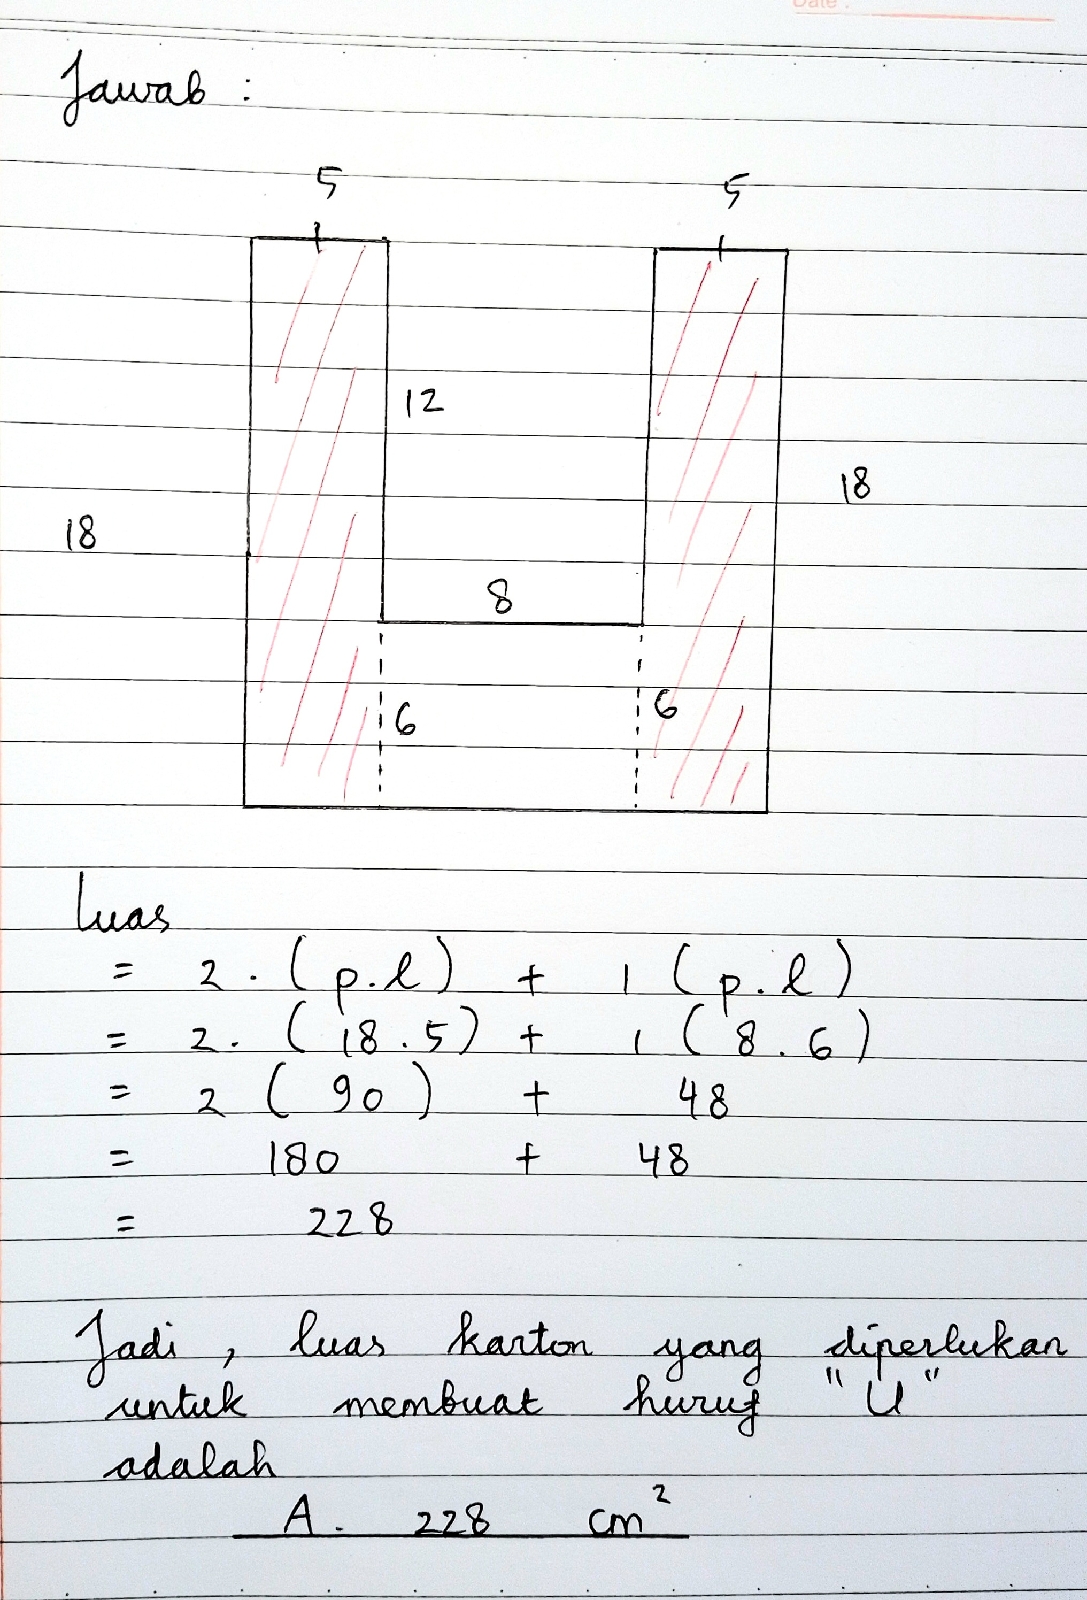 Date :
Jawab :
5 5
12
18
18
8
6 6
Luas
= 2 . ( p . l ) + 1 ( p . l )
= 2 . ( 18 . 5 ) + 1 ( 8 . 6 )
= 2 ( 90 ) + 48
= 180 + 48
= 228
Jadi , luas karton yang diperlukan
untuk membuat huruf "U"
adalah
A. 228 cm²